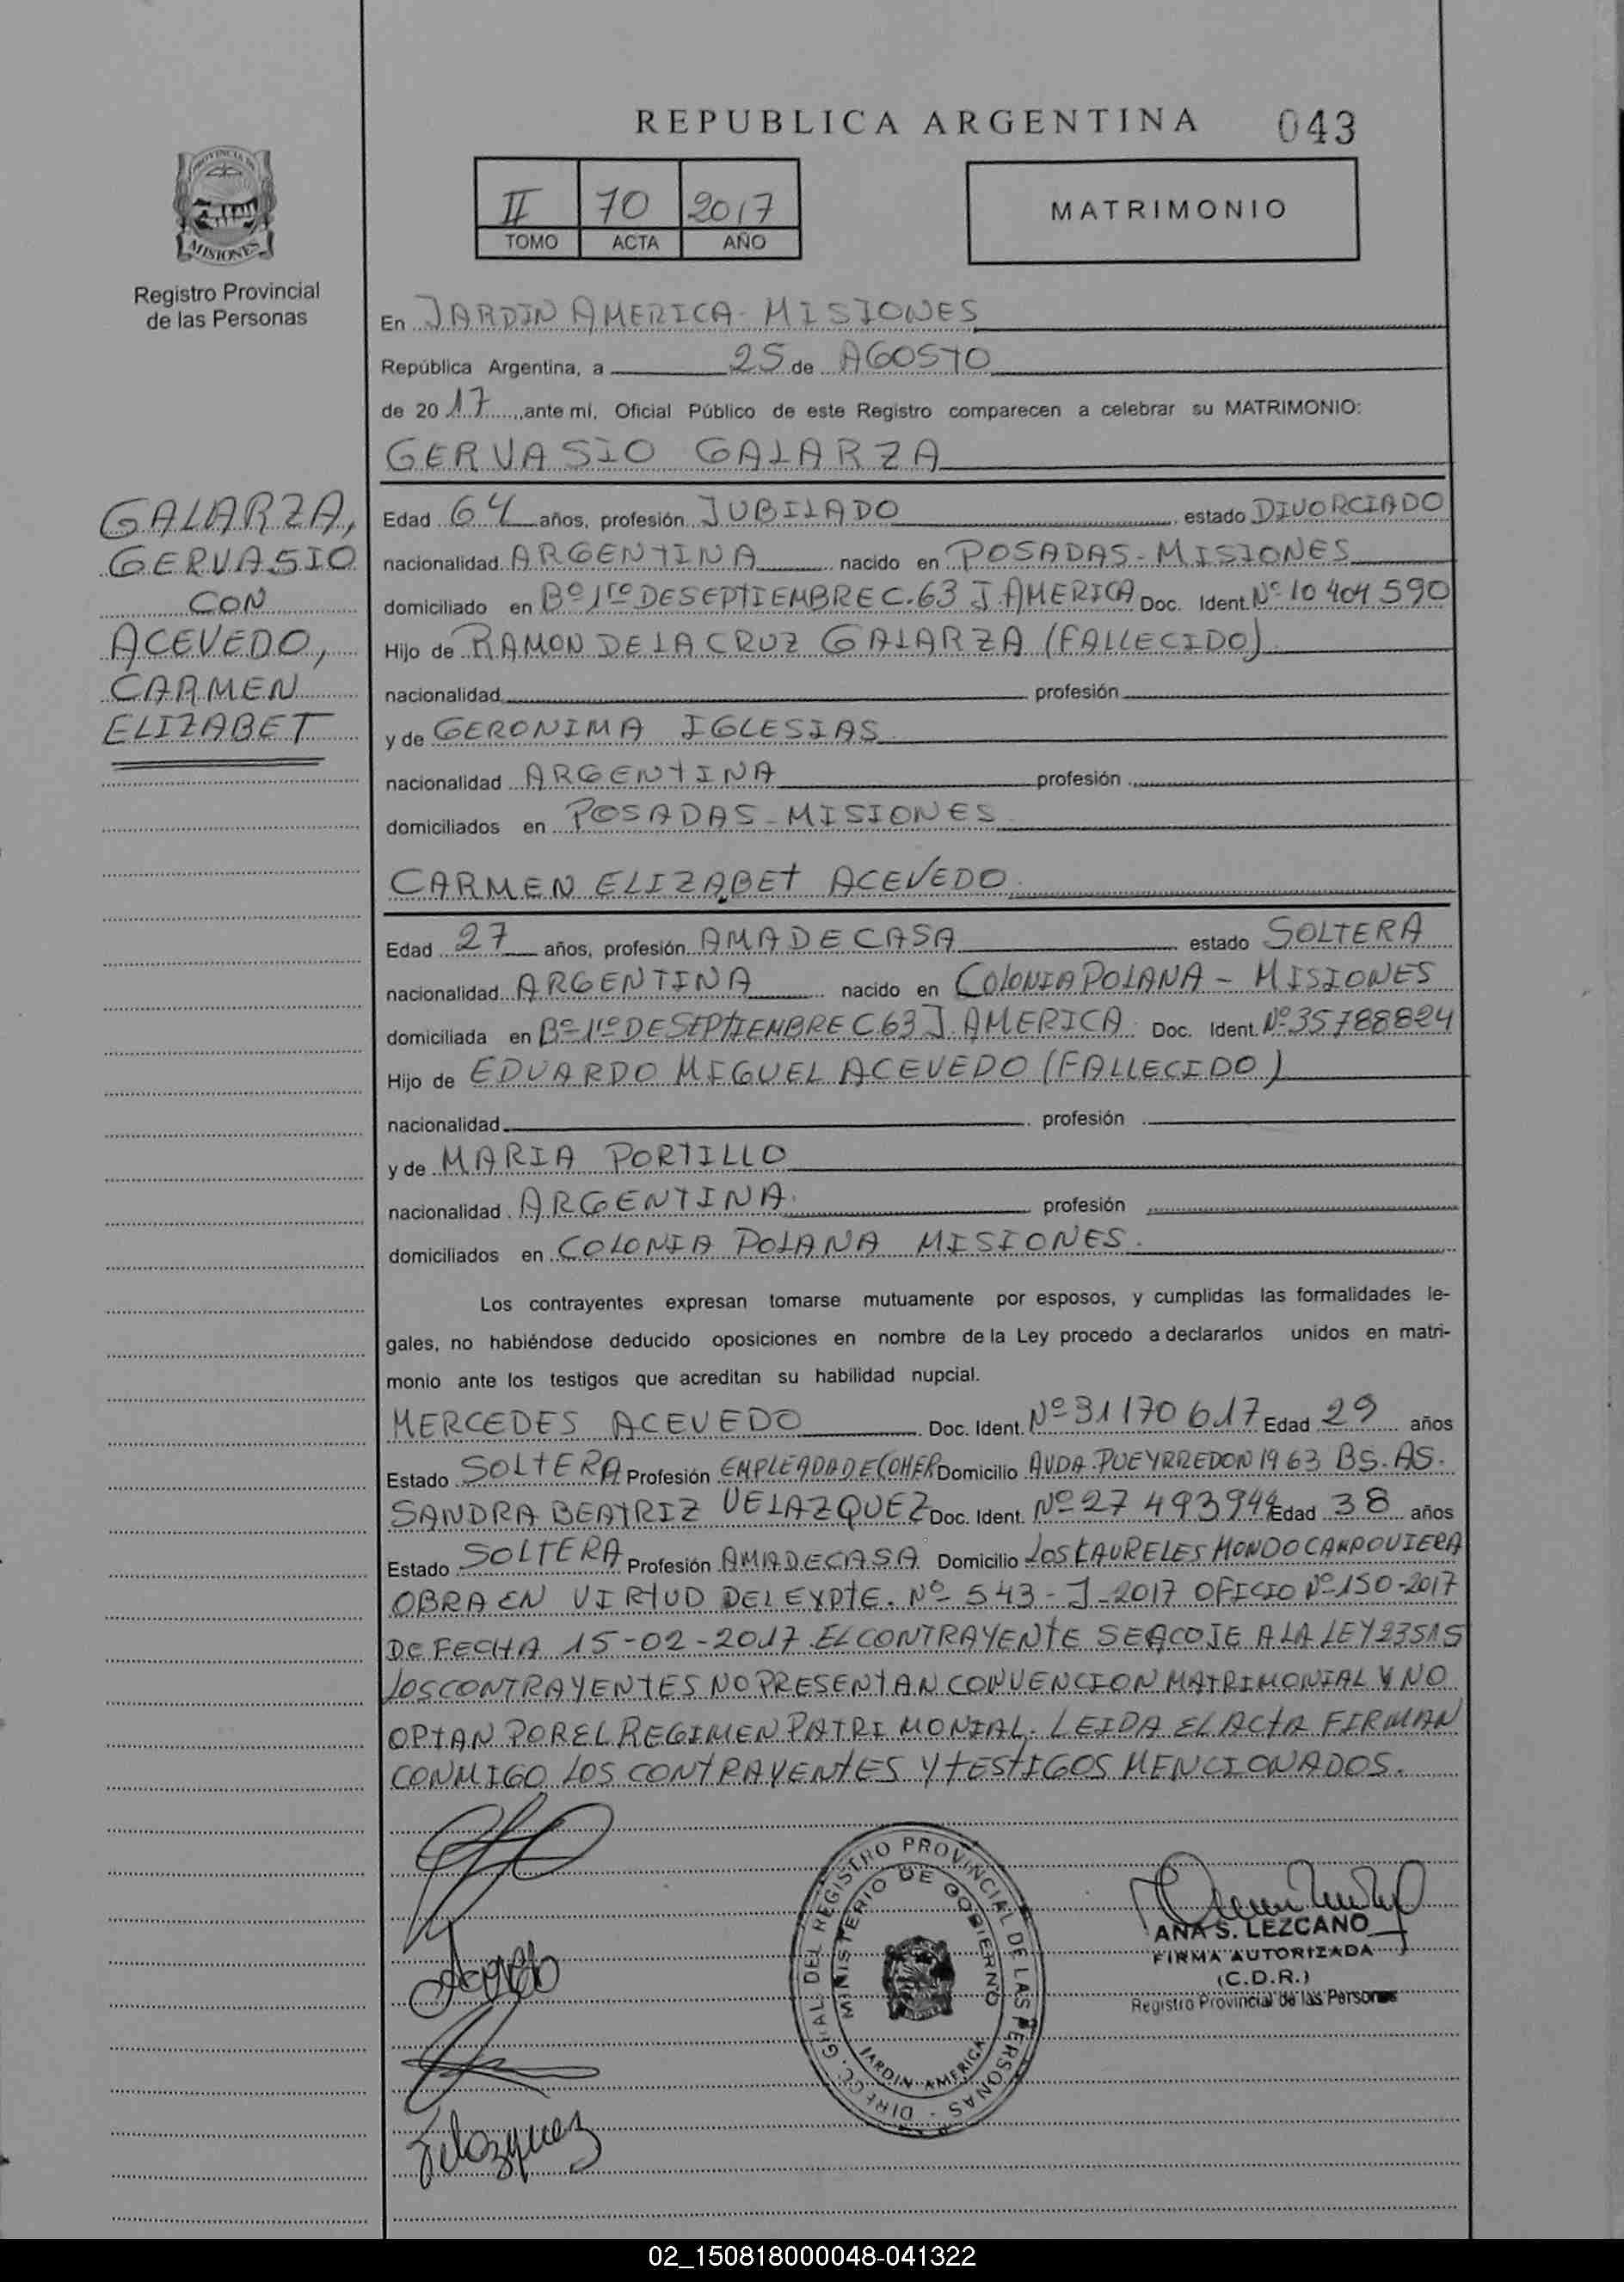 REPUBLICA ARGENTINA 043
PROVINCIA DE
MISIONES
Registro Provincial
de las Personas
II 70 2017
TOMO ACTA AÑO
MATRIMONIO
En JARDIN AMERICA - MISIONES
República Argentina, a 25 de AGOSTO
de 20 17 ante mí, Oficial Público de este Registro comparecen a celebrar su MATRIMONIO:
GERVASIO GALARZA
GALARZA,
GERVASIO
CON
ACEVEDO,
CARMEN
ELIZABET
Edad 64 años, profesión JUBILADO estado DIVORCIADO
nacionalidad ARGENTINA nacido en POSADAS - MISIONES
domiciliado en Bº 1ro DE SEPTIEMBRE C.63 J. AMERICA Doc. Ident. Nº 10 404 590
Hijo de RAMON DE LA CRUZ GALARZA (FALLECIDO)
nacionalidad profesión
y de GERONIMA IGLESIAS
nacionalidad ARGENTINA profesión
domiciliados en POSADAS - MISIONES
CARMEN ELIZABET ACEVEDO
Edad 27 años, profesión AMA DE CASA estado SOLTERA
nacionalidad ARGENTINA nacido en COLONIA POLANA - MISIONES
domiciliada en Bº 1ro DE SEPTIEMBRE C63 J. AMERICA Doc. Ident. Nº 35788824
Hijo de EDUARDO MIGUEL ACEVEDO (FALLECIDO)
nacionalidad profesión
y de MARIA PORTILLO
nacionalidad ARGENTINA profesión
domiciliados en COLONIA POLANA MISIONES.
Los contrayentes expresan tomarse mutuamente por esposos, y cumplidas las formalidades le-
gales, no habiéndose deducido oposiciones en nombre de la Ley procedo a declararlos unidos en matri-
monio ante los testigos que acreditan su habilidad nupcial.
MERCEDES ACEVEDO Doc. Ident. Nº 31170617 Edad 29 años
Estado SOLTERA Profesión EMPLEADA DE COMER Domicilio AVDA. PUEYRREDON 1963 BS. AS.
SANDRA BEATRIZ VELAZQUEZ Doc. Ident. Nº 27 493944 Edad 38 años
Estado SOLTERA Profesión AMA DE CASA Domicilio LOS LAURELES MONDO CAMPO VIERA
OBRA EN VIRTUD DEL EXPTE. Nº 543 - J - 2017 OFICIO Nº 150-2017
DE FECHA 15-02-2017. EL CONTRAYENTE SE ACOJE A LA LEY 23515
LOS CONTRAYENTES NO PRESENTAN CONVENCION MATRIMONIAL Y NO
OPTAN POR EL REGIMEN PATRIMONIAL. LEIDA EL ACTA FIRMAN
CONMIGO LOS CONTRAYENTES Y TESTIGOS MENCIONADOS.
Acevedo
Velazquez
DIREC. GRAL. DEL REGISTRO PROVINCIAL DE LAS PERSONAS
MINISTERIO DE GOBIERNO
JARDIN AMERICA
ANA S. LEZCANO
FIRMA AUTORIZADA
(C.D.R.)
Registro Provincial de las Personas
02_150818000048-041322